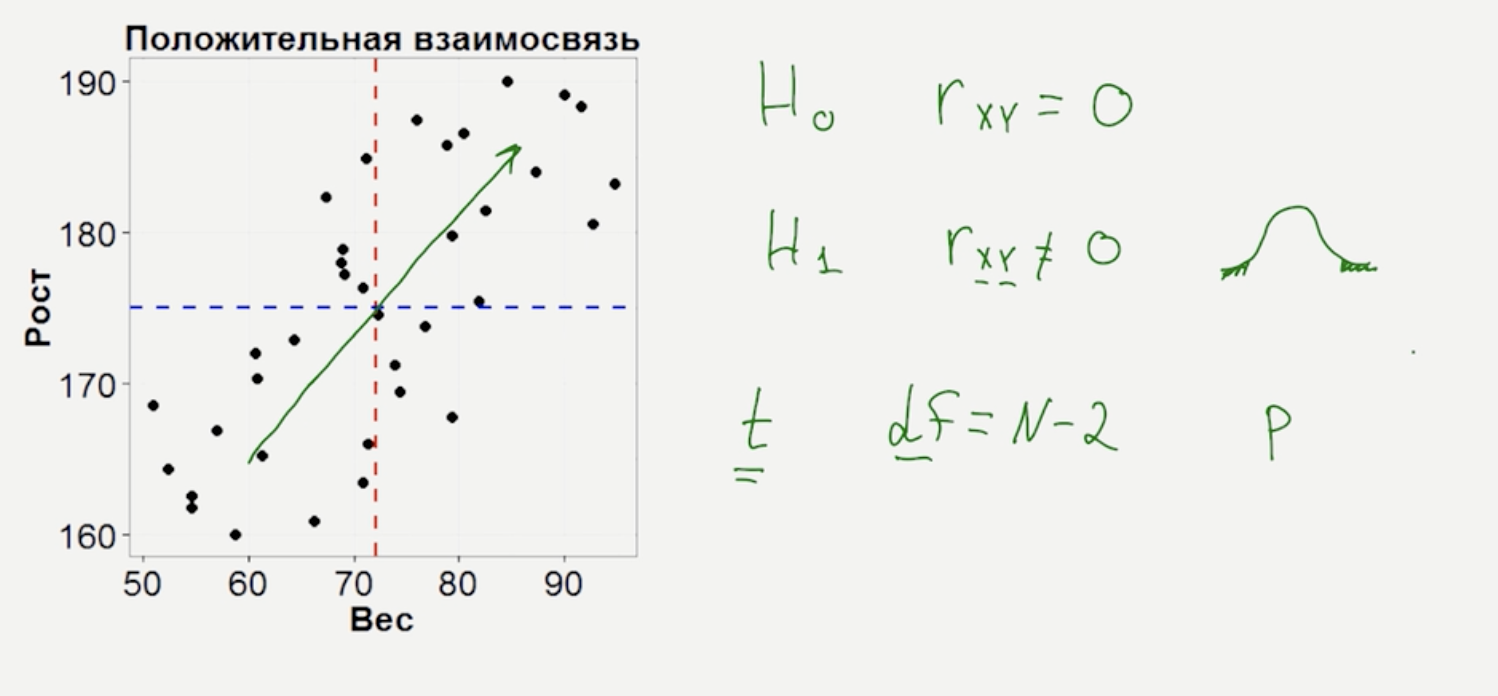 Положительная взаимосвязь
190
180
170
160
Рост
50 60 70 80 90
Вес
H₀ r_XY = 0
H₁ r_XY ≠ 0
t df = N-2 P